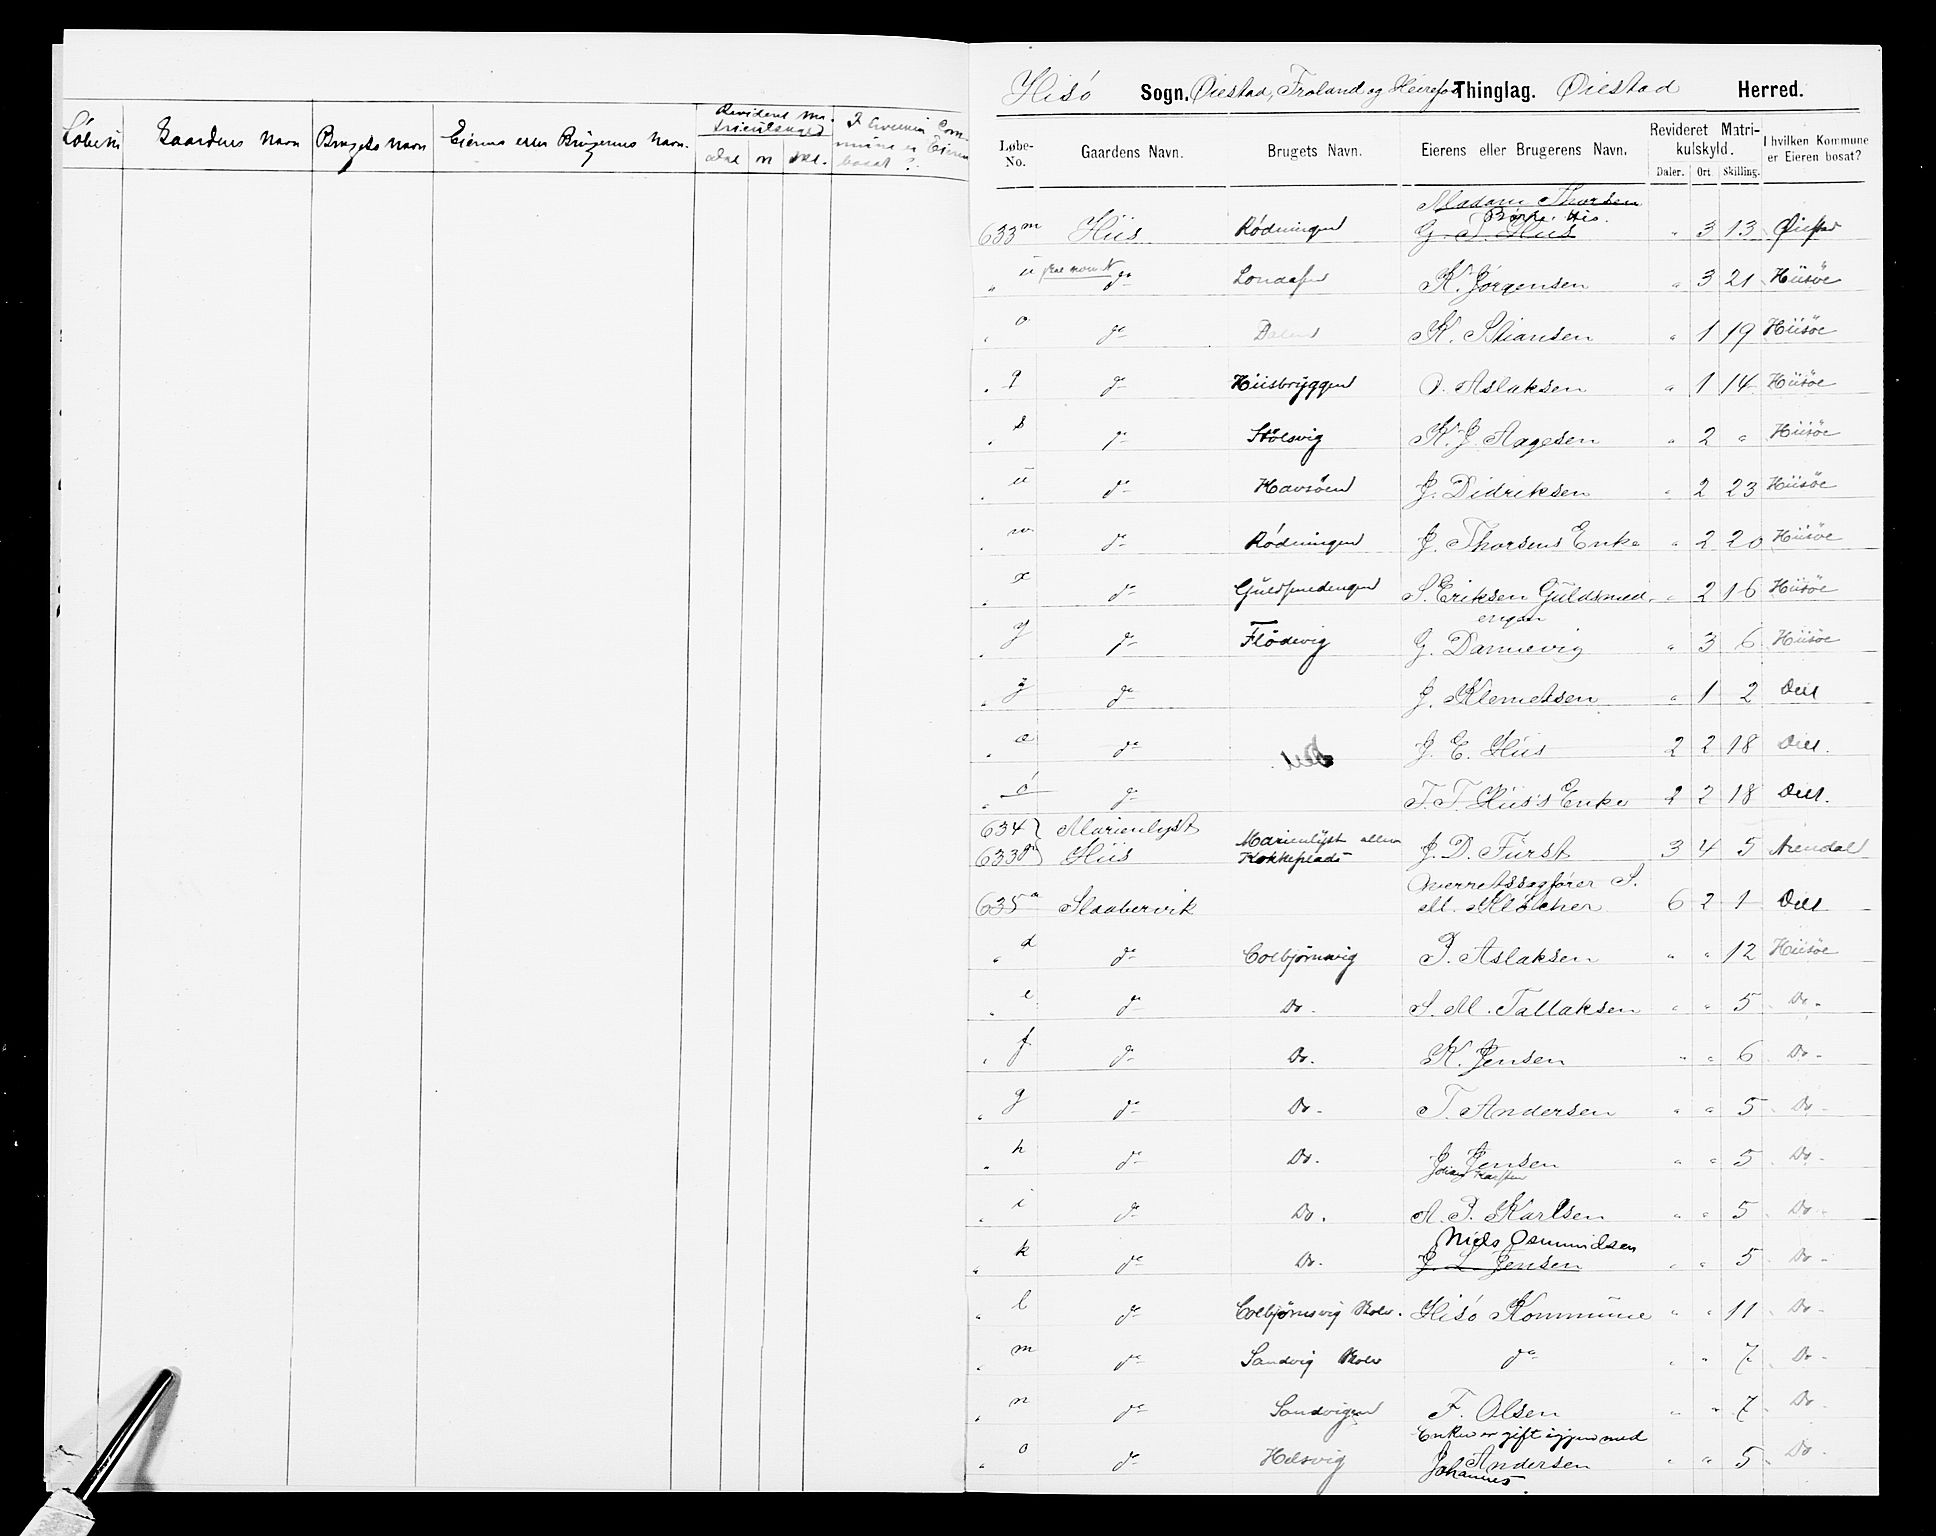 Løbeno Gaardens Navn Brugets Navn Eierens eller Brugerens Navn. Revideret Ma-
trikulskyld Dal. Ort Skl. I hvilken Com-
mune er Eieren
bosat?
Hisö Sogn. Øiestad, Froland og Heirefos Thinglag. Øiestad Herred.
Løbe-
No. Gaardens Navn. Brugets Navn. Eierens eller Brugerens Navn. Revideret Matri-
kulskyld. I hvilken Kommune
er Eieren bosat?
Daler. Ort Skilling.
Madam Thorsen
633 m Hiis Rödningen G. T. Hiis " 3 13 Øiestad
" do K. Jörgensen " 3 21 Hiisöe
" o do Dalen K. Stiansen " 1 19 Hiisöe
" q do Hiisbryggen O. Aslaksen " 1 14 Hiisöe
" s do Stölsvig K. J. Aagesen " 2 " Hiisöe
" u do Havsöen J. Didriksen " 2 23 Hiisöe
" w do Rödningen J. Thorsens Enke " 2 20 Hiisöe
" x do Guldsmedengen S. Eriksen Guldsmed- " 2 16 Hiisöe
engen
" y do Flödevig G. Dannevig " 3 6 Hiisöe
" z do J. Klemetsen " 1 2 Do
" æ do J. E. Hiis 2 2 18 Do.
" ö do T. T. Hiis's Enke 2 2 18 Do.
634 Marienlyst
633 Hiis Marienlyst eller
Kokkeplads J. D. Fürst 3 4 5 Arendal
Overretssagförer S.
635 a Slaabervik M. Klöcker 6 2 1 Do
" d do Colbjörnsvig P. Aslaksen " " 12 Hiisöe
" e do Do. S. M. Tallaksen " " 5 Do.
" f do Do. K. Jensen " " 6 Do.
" g do Do. T. Andersen " " 5 Do.
" h do Do. J. Jensen " " 5 Do.
" i do Do. A. P. Karlsen " " 5 Do.
Niels Osmundsen
" k do Do. J. L. Jensen " " 5 Do.
" l do Colbjörnsvig Skole. Hisö Kommune " " 11 Do.
" m do Sandvig Skole do " " 7 Do.
" n do Sandvigen F. Olsen " " 7 Do.
Enken er gift igjen med
" o do Helsvig J. Andersen " " 5 Do.
Johannes